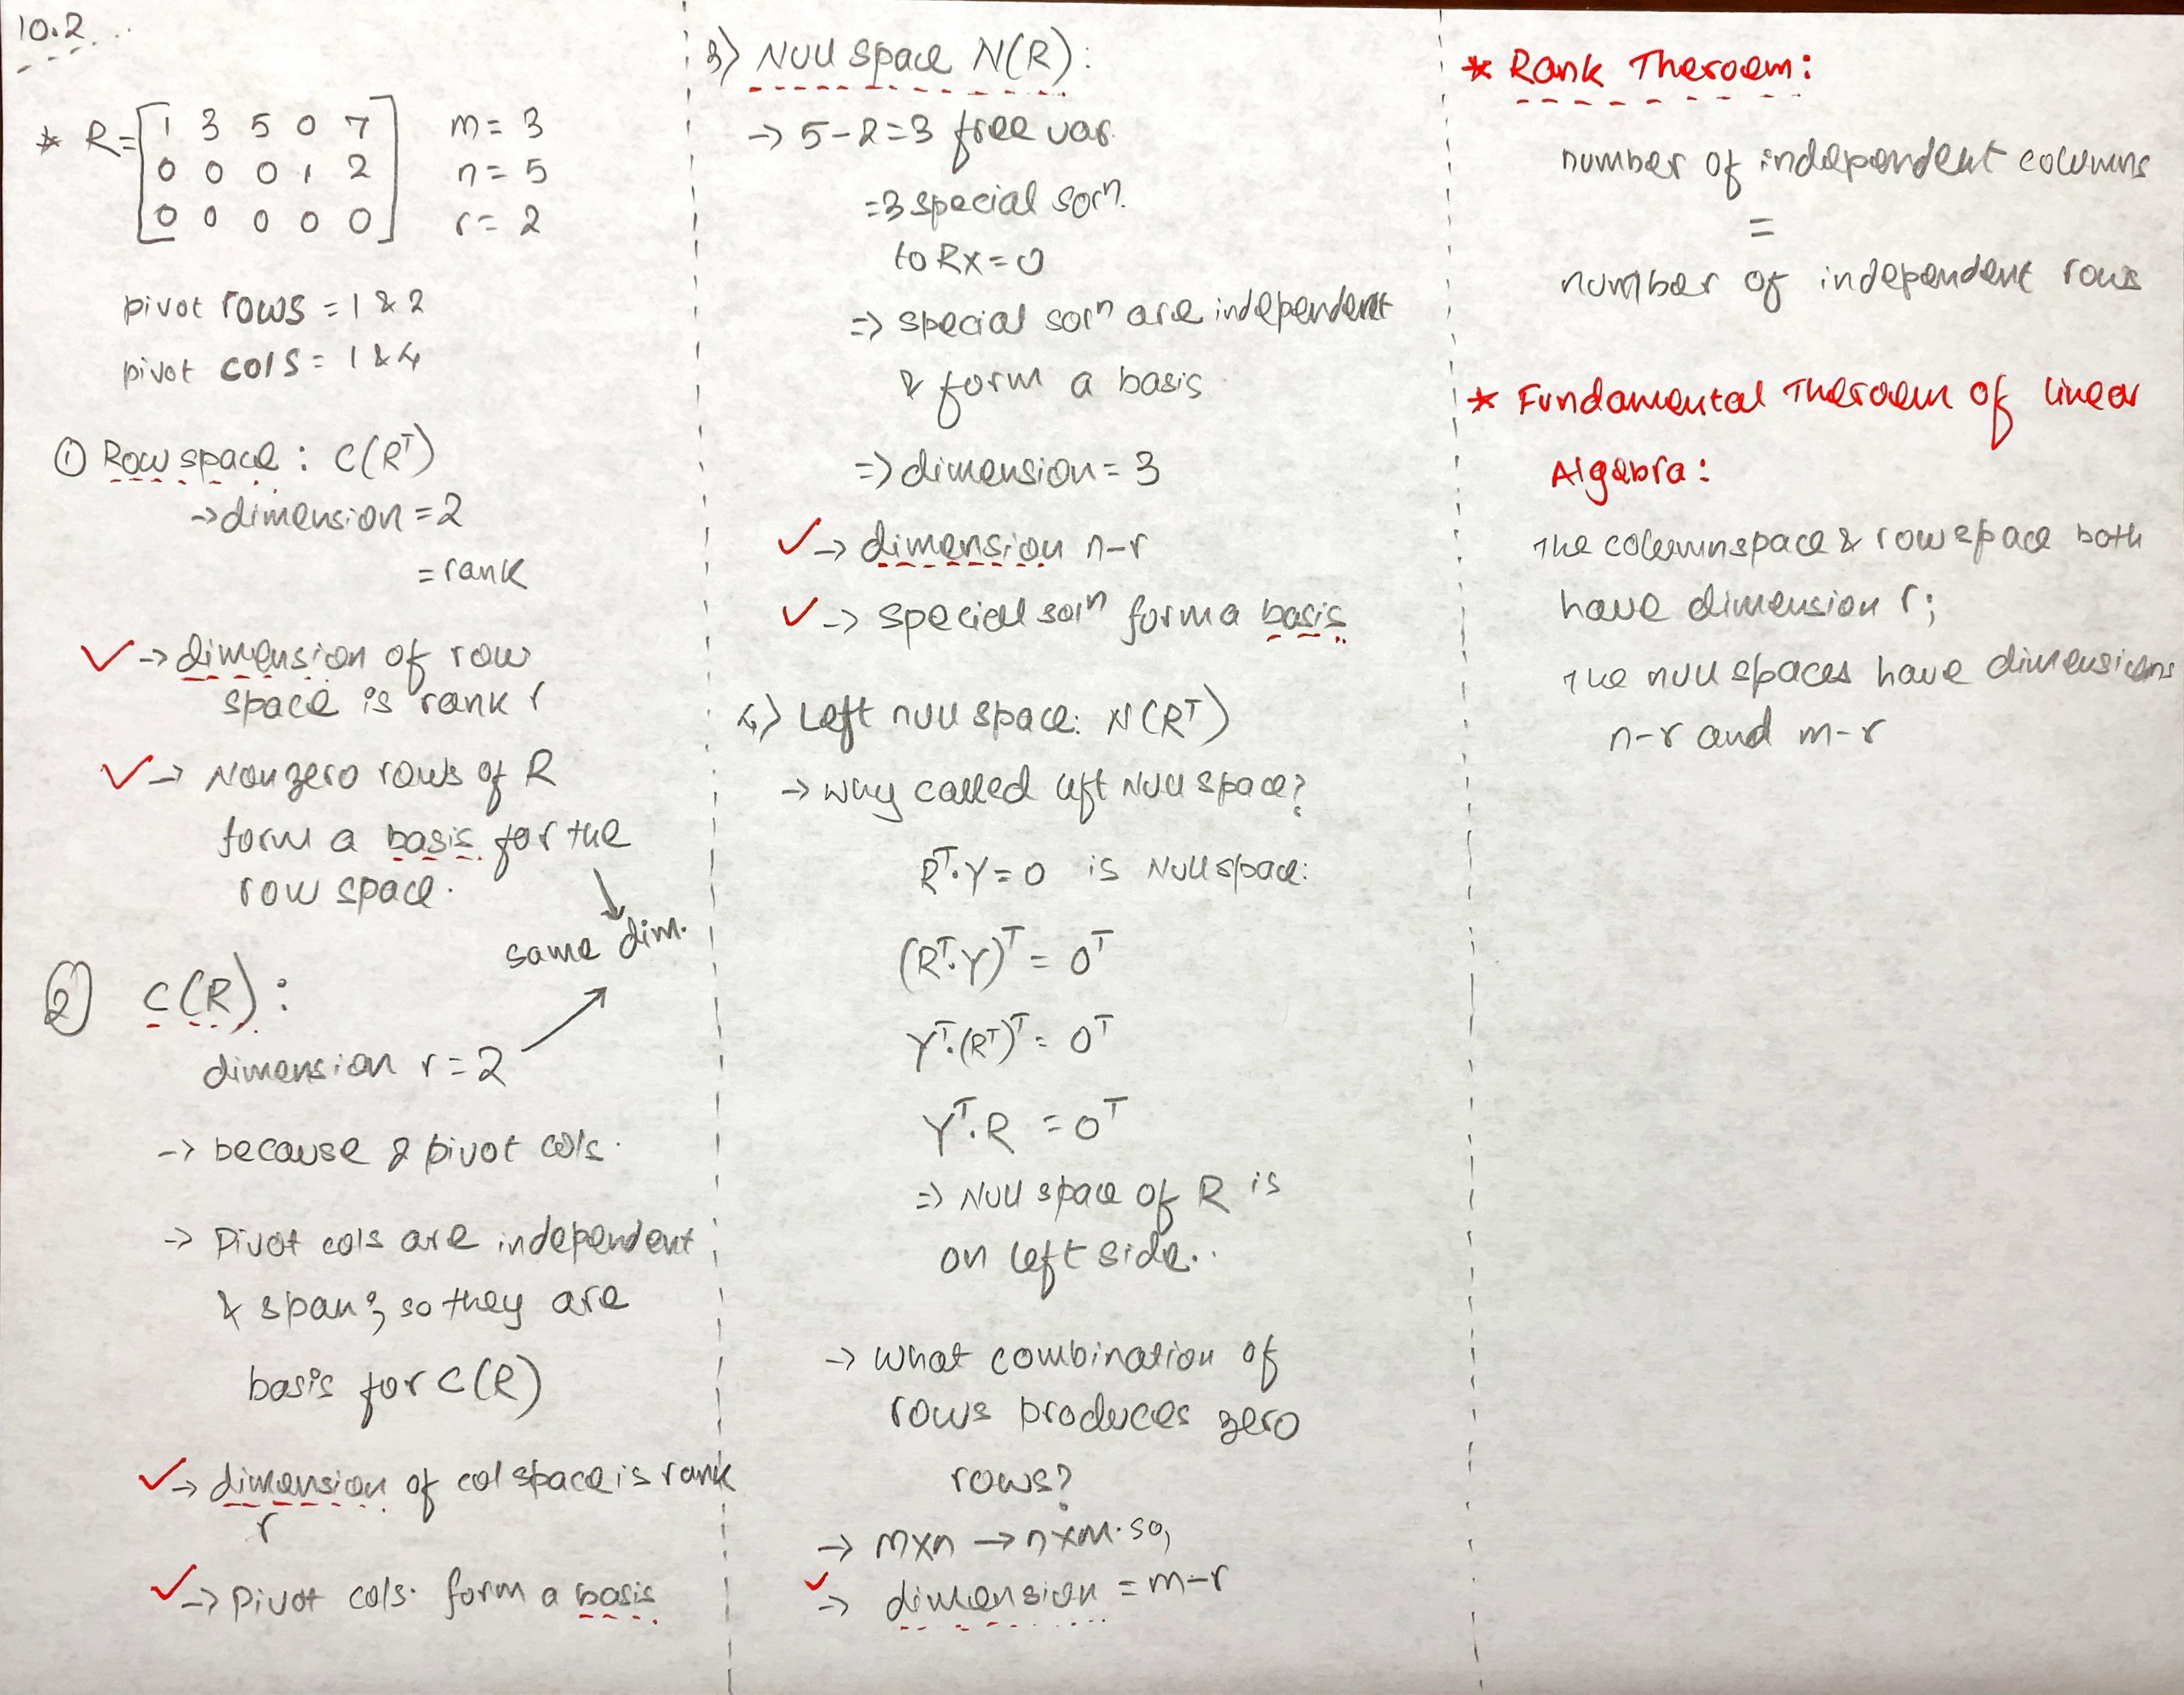 10.2...
* R= [1 3 5 0 7] m= 3
[0 0 0 1 2] n= 5
[0 0 0 0 0] r= 2
pivot rows = 1 & 2
pivot cols = 1 & 4
① Row space : C(Rᵀ)
→ dimension = 2
= rank
✓ → dimension of row
space is rank r
✓ → Non zero rows of R
form a basis for the
row space.
same dim.
② C(R) :
dimension r = 2
→ because 2 pivot cols.
→ Pivot cols are independent
& span; so they are
basis for C(R)
✓ → dimension of col space is rank
r
✓ → pivot cols. form a basis
3) Null space N(R) :
→ 5-2=3 free var.
=3 special solⁿ.
to Rx = 0
=> special solⁿ are independent
& form a basis
=> dimension = 3
✓ → dimension n-r
✓ → special solⁿ form a basis
4) Left null space: N(Rᵀ)
→ why called left Null space?
Rᵀ.Y = 0 is Null space:
(Rᵀ.Y)ᵀ = 0ᵀ
Yᵀ.(Rᵀ)ᵀ = 0ᵀ
Yᵀ.R = 0ᵀ
=> Null space of R is
on left side..
→ what combination of
rows produces zero
rows?
→ mxn → nxm. so,
✓ → dimension = m-r
* Rank Theroem:
number of independent columns
=
number of independent rows
* Fundamental Theroem of linear
Algebra:
The columnspace & rowspace both
have dimension r;
The null spaces have dimensions
n-r and m-r